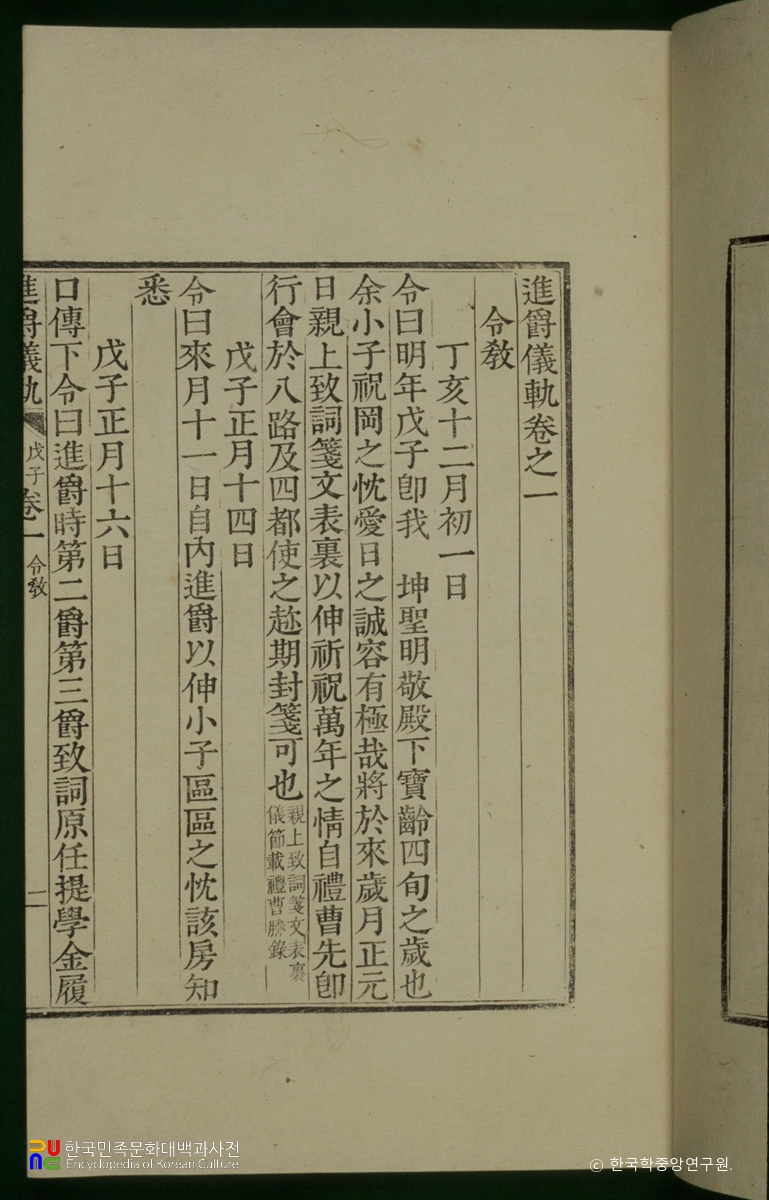 進爵儀軌卷之一
令敎
丁亥十二月初一日
令曰明年戊子卽我 坤聖明敬殿下寶齡四旬之歲也
余小子祝岡之忱愛日之誠容有極哉將於來歲月正元
日親上致詞箋文表裏以伸祈祝萬年之情自禮曹先卽
行會於八路及四都使之趁期封箋可也親上致詞箋文表裏
儀節載禮曹謄錄
戊子正月十四日
令曰來月十一日自內進爵以伸小子區區之忱該房知
悉
戊子正月十六日
口傳下令曰進爵時第二爵第三爵致詞原任提學金履
進爵儀軌 戊子 卷一 令敎 一
한국민족문화대백과사전
Encyclopedia of Korean Culture
© 한국학중앙연구원.